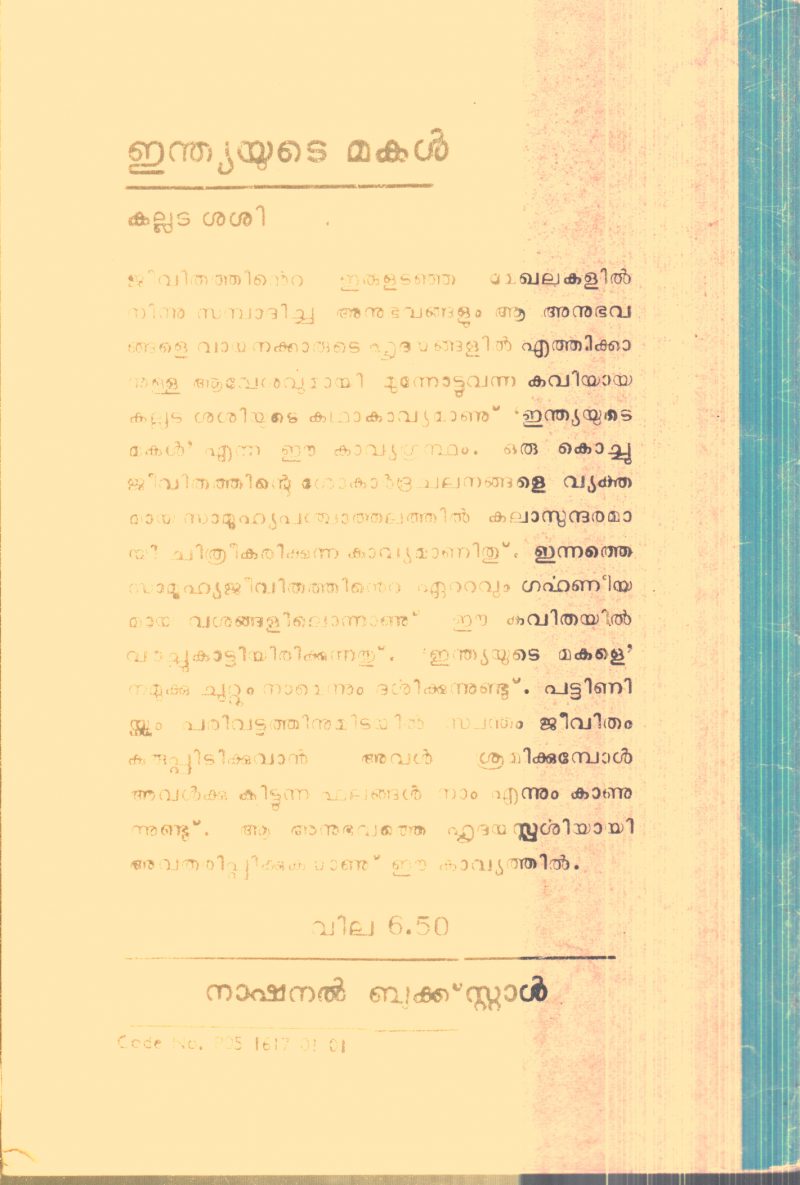 ഇന്ത്യയുടെ മകൾ
കല്ലട ശശി
ജീവിതത്തിന്റെ ഇരുളടഞ്ഞ മേഖലകളിൽ
നിന്നു സമ്പാദിച്ച അനുഭവങ്ങളും ആ അനുഭവ
ങ്ങളെ വായനക്കാരുടെ ഹൃദയങ്ങളിൽ എത്തിക്കാ
നുള്ള ആവേശവുമായി മുന്നോട്ടുവന്ന കവിയായ
കല്ലട ശശിയുടെ കഥാകാവ്യമാണു് 'ഇന്ത്യയുടെ
മകൾ' എന്ന ഈ കാവ്യഗ്രന്ഥം. ഒരു കൊച്ചു
ജീവിതത്തിന്റെ ശോകാർദ്രചലനങ്ങളെ വ്യക്ത
മായ സാമൂഹ്യപശ്ചാത്തലത്തിൽ കലാസുന്ദരമാ
യി ചിത്രീകരിക്കുന്ന കാവ്യമാണിതു്. ഇന്നത്തെ
സാമൂഹ്യജീവിതത്തിന്റെ ഏററവും ഗർഹണീയ
മായ വശങ്ങളിലൊന്നാണു് ഈ കവിതയിൽ
വരച്ചുകാട്ടിയിരിക്കുന്നതു്. 'ഇന്ത്യയുടെ മകളെ'
നമുക്കു ചുറ്റും നാമെന്നും ദർശിക്കുന്നുണ്ടു്. പട്ടിണി
യ്ക്കും പരിവട്ടത്തിനുമിടയിൽ സ്വന്തം ജീവിതം
കരുപ്പിടിക്കുവാൻ അവൾ ശ്രമിക്കുമ്പോൾ
അവൾക്കു കിട്ടുന്ന ഫലങ്ങൾ നാം എന്നും കാണു
ന്നുണ്ടു്. ആ അനുഭവത്തെ ഹൃദയസ്പർശിയായി
അവതരിപ്പിക്കുകയാണു് ഈ കാവ്യത്തിൽ.
വില 6.50
നാഷനൽ ബുക്ക്സ്റ്റാൾ
Code No. 1617 01 01